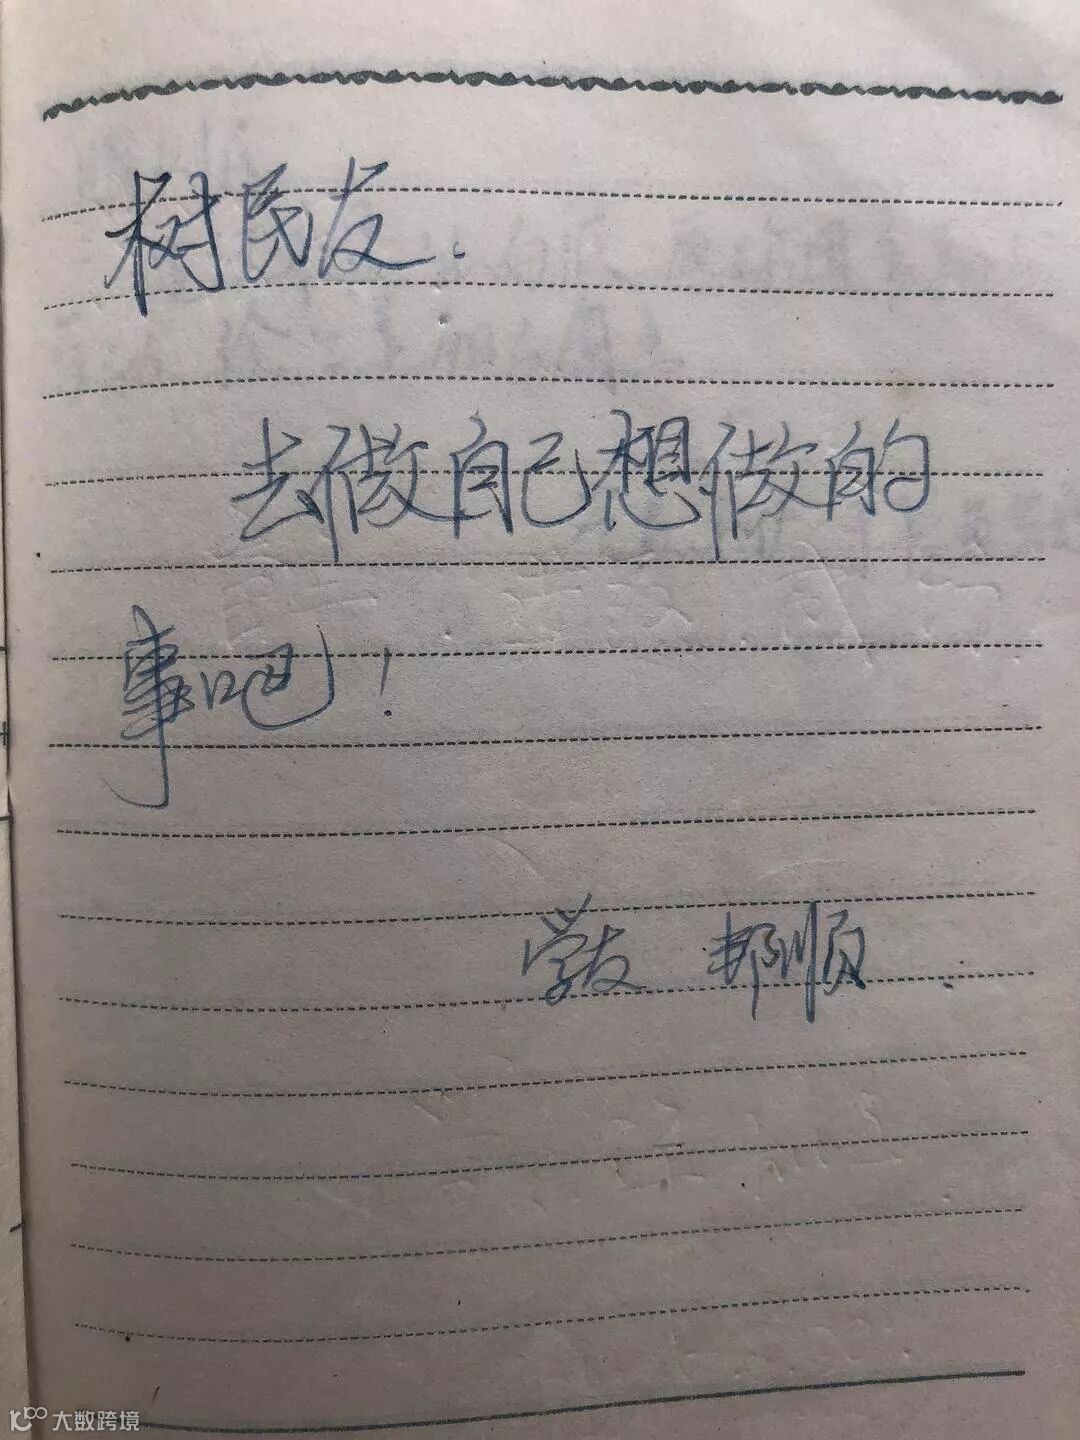 树民友.
去做自己想做的
事吧!
学友 邦顺
大数跨境